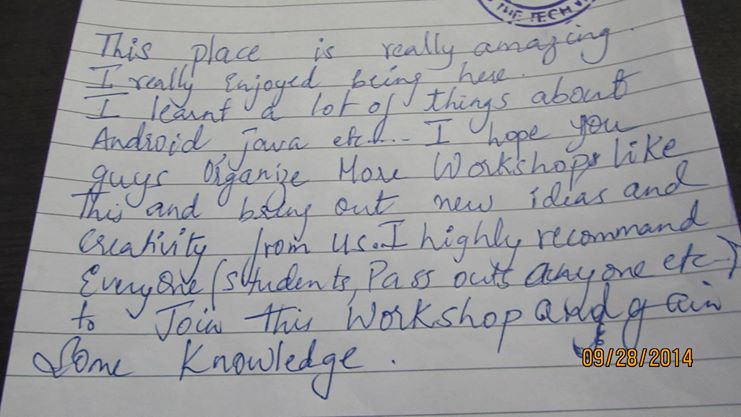 THE TECH
This place is really amazing.
I really Enjoyed being here.
I learnt a lot of things about
Android, java etc.... I hope you
guys Organize More Workshops like
this and bring out new ideas and
Creativity from us. I highly recommand
Everyone (students, Pass outs anyone etc-)
to Join this Workshop and gain
Some Knowledge.
09/28/2014